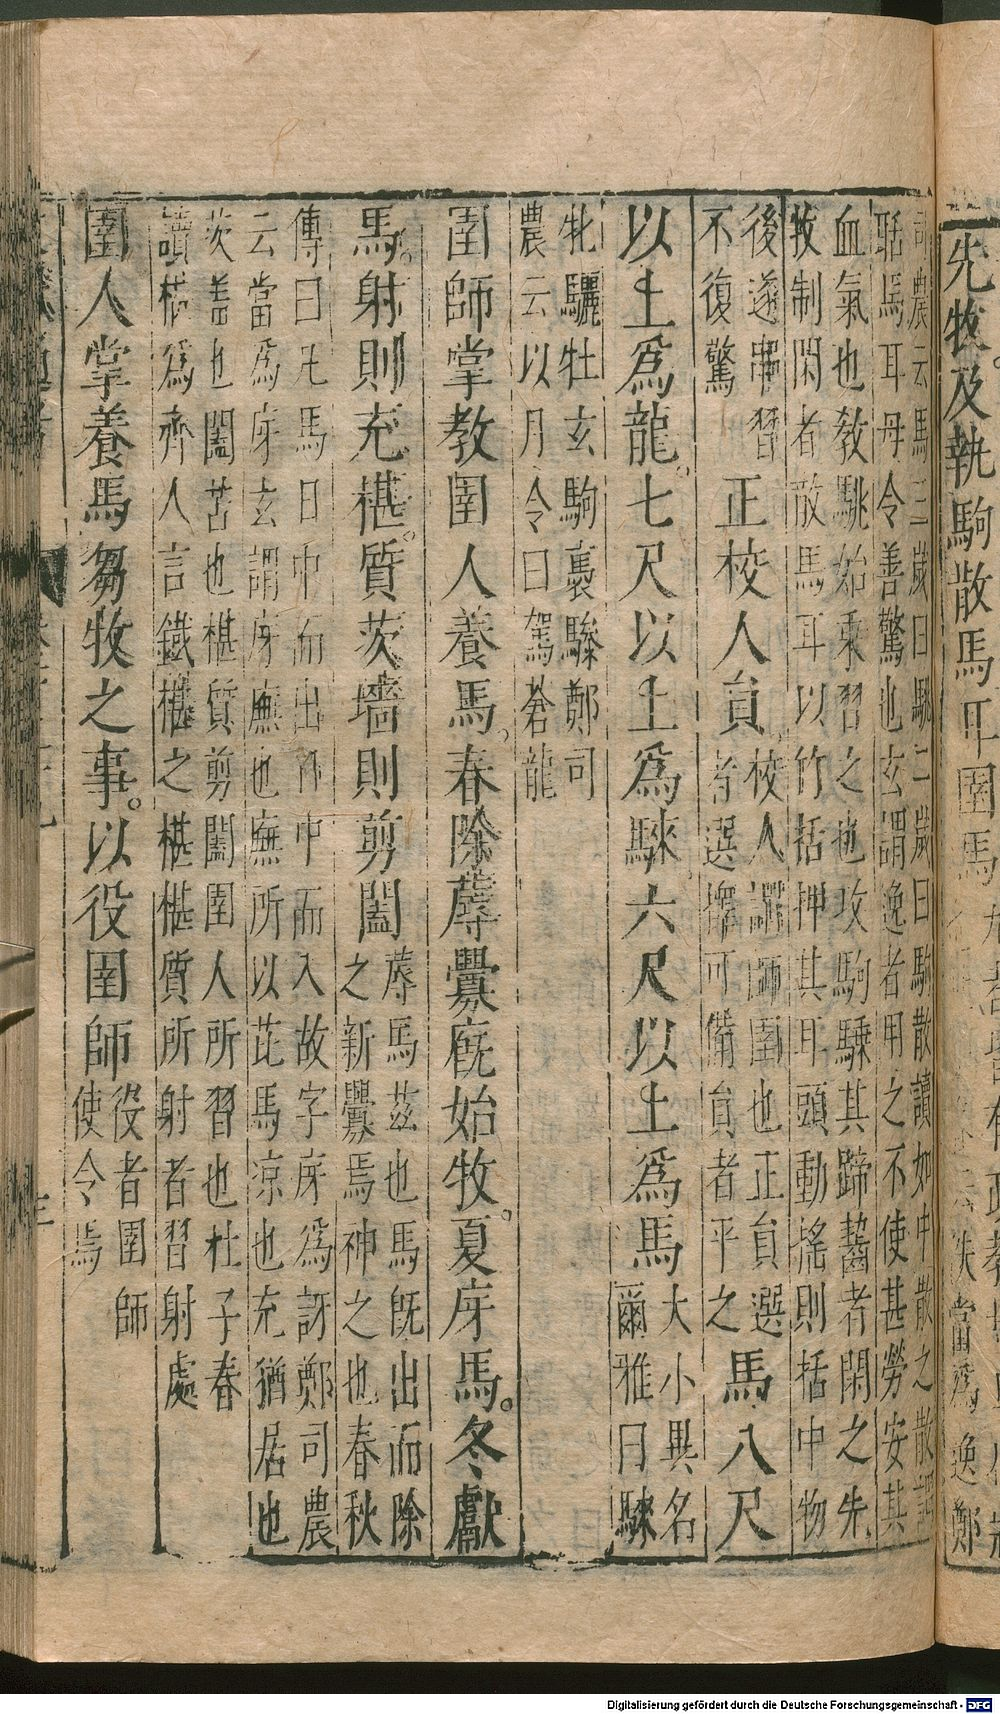 先牧及執駒散馬耳圉馬
司農云馬三歲曰駣二歲曰駒散讀如中散之散謂
聒馬耳毋令善驚也玄謂逸者用之不使甚勞安其
血氣也敎駣始乘習之也攻駒騬其蹄齧者閑之先
牧制閑者散馬耳以竹括押其耳頭動搖則括中物
後遂串習
不復驚
正校人員
校人謂師圉也正員選
者選擇可備員者平之
馬八尺
以上爲龍。七尺以上爲騋六尺以上爲馬
大小異名
爾雅曰騋
牝驪牡玄駒褭驂鄭司
農云以月令曰駕蒼龍
圉師掌教圉人養馬。春除蓐釁廄始牧。夏庌馬。冬獻
馬。射則充椹。質茨墻則剪闔
蓐馬茲也馬旣出而除
之新釁焉神之也春秋
傳曰凡馬日中而出日中而入故字庌爲訝鄭司農
云當爲庌玄謂庌廡也廡所以茈馬凉也充猶居也
茨蓋也闔苫也椹質剪闔圉人所習也杜子春
讀椹爲齊人言鐵椹之椹椹質所射者習射處
圉人掌養馬芻牧之事。以役圉師
役者圉師
使令焉
Digitalisierung gefördert durch die Deutsche Forschungsgemeinschaft - DFG